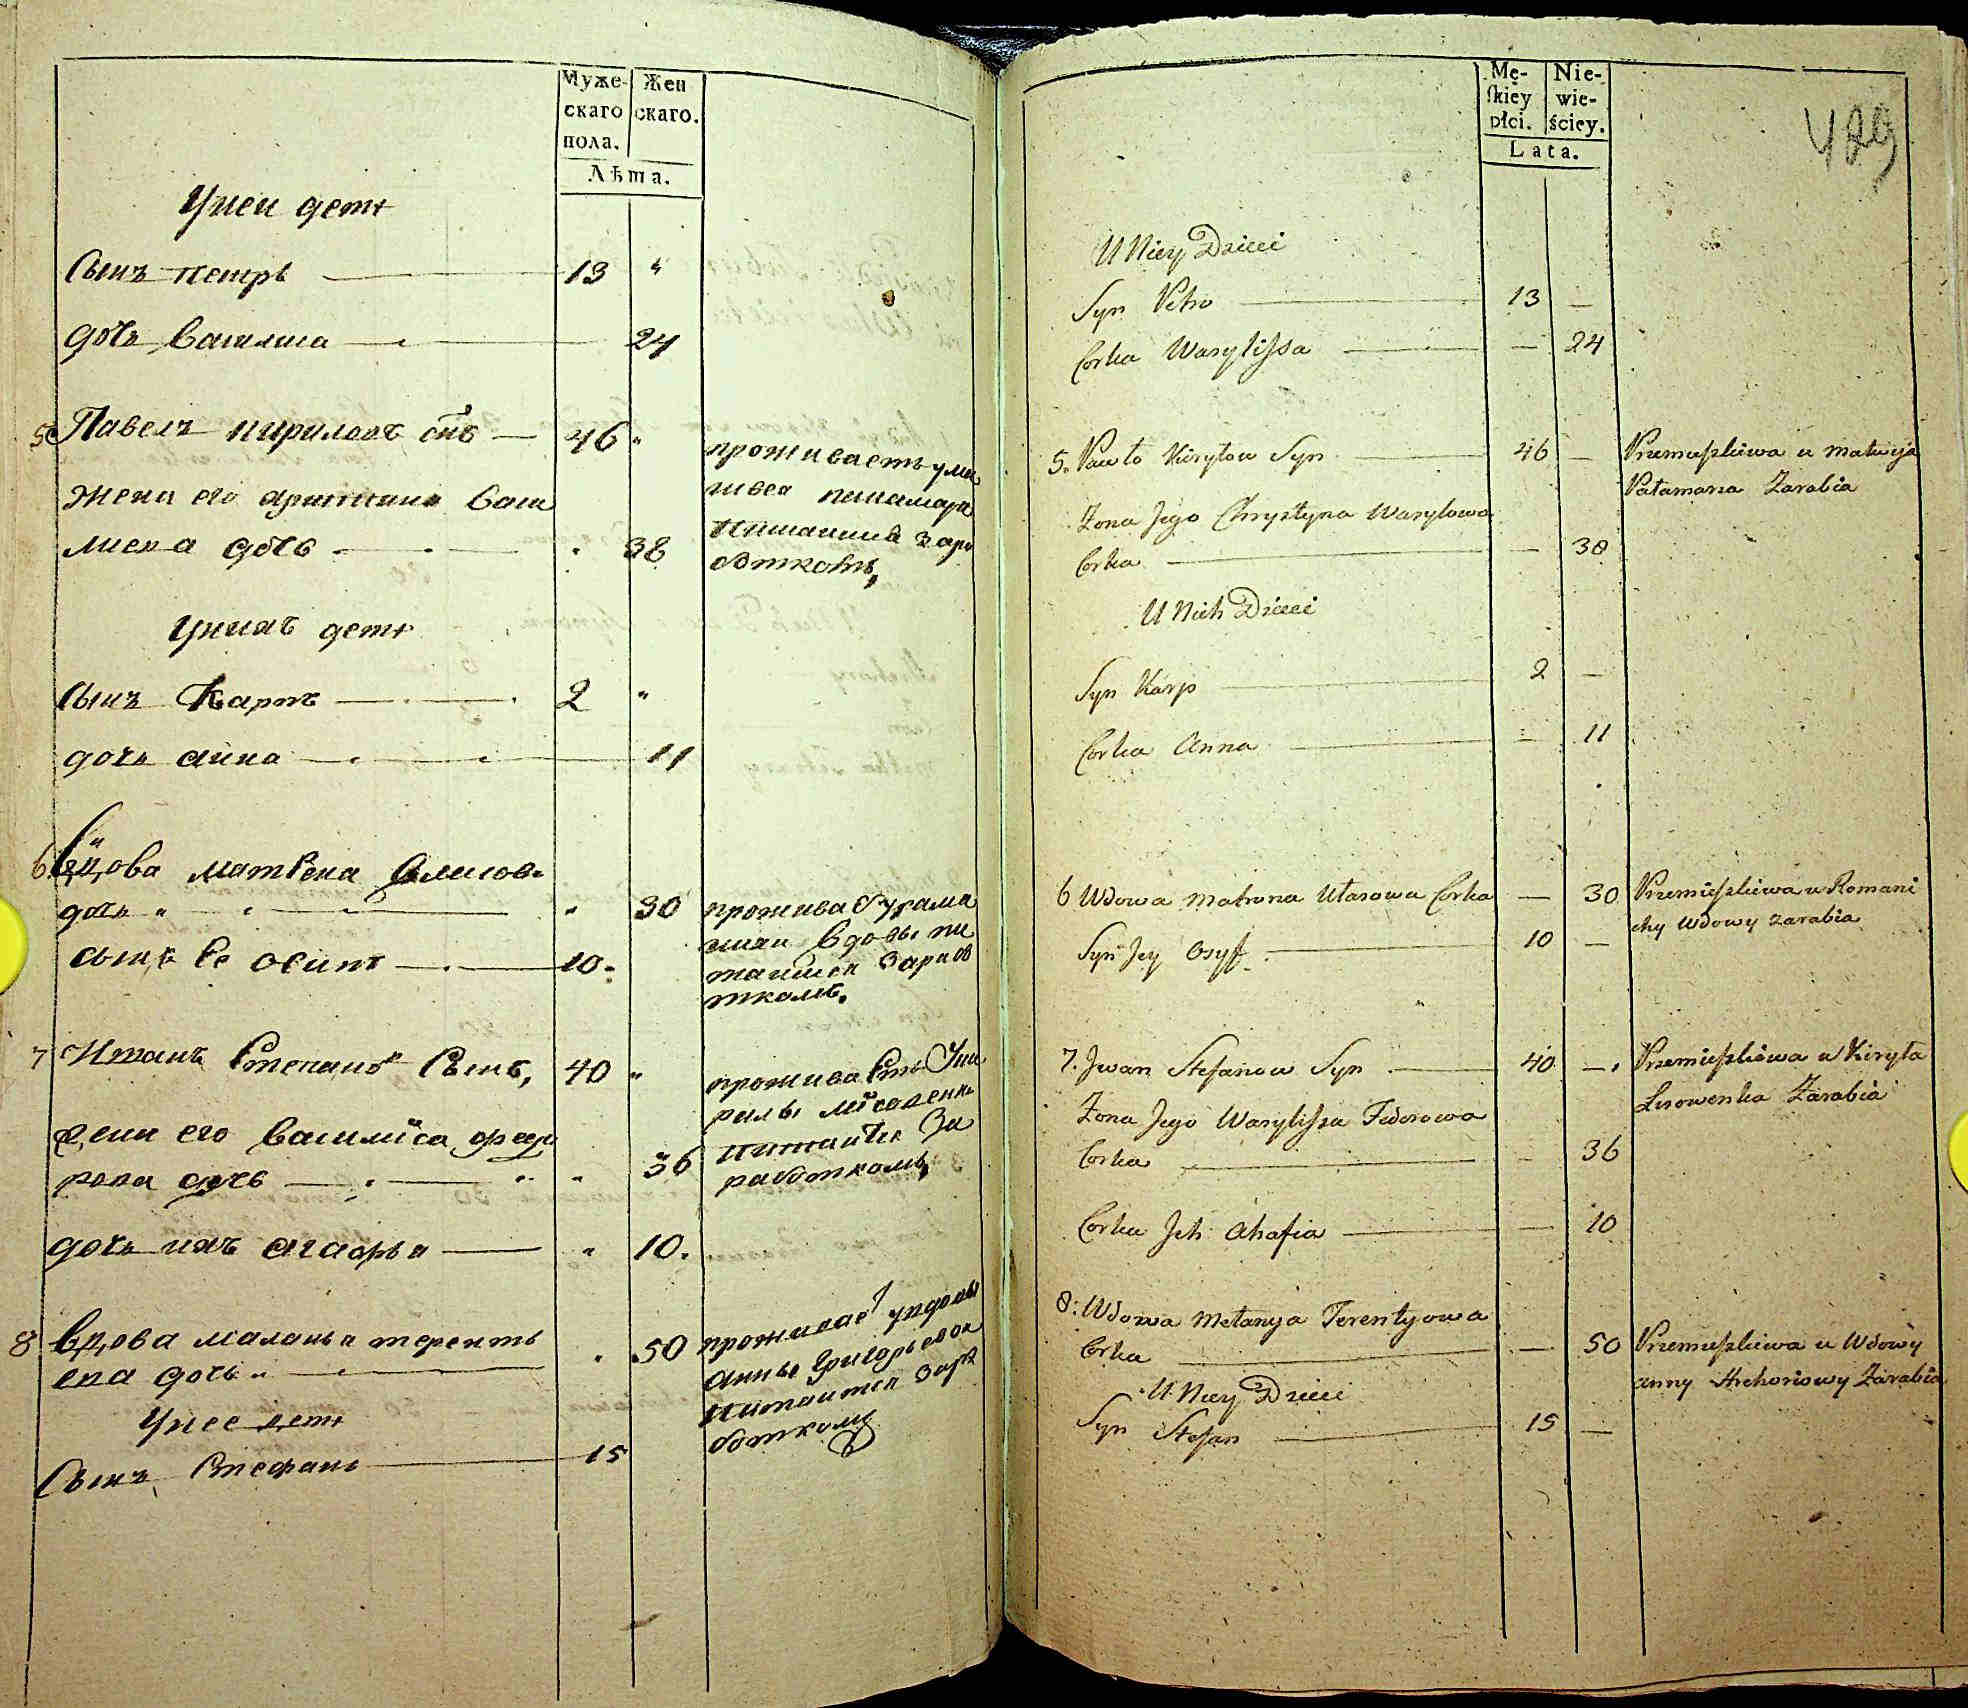 Муже-
скаго
пола.
Жен
скаго.
Лѣта.
Унеи дети
Сынъ петръ 13 "
дочь Василиса 24
5 Павелъ кириловъ снъ 46 "
проживаетъ у мат
жена его христина васи
твея панамара
лиева дочь 38
питаиться зара
откомъ,
Унихъ дети
Сынъ Карпъ 2 "
дочь анна 11
6 Вдова матрена
дочь " " 30
сынъ ее осипъ 10
вдовы пи
таиться зарабо
ткомъ.
7 Иванъ Степановъ Сынъ, 40 "
проживаетъ Уки
рилы
жена его василиса федо
питаится За
рова дочь " 36
работкомъ,
дочь ихъ агафья " 10.
8 Вдова маланья теренть
ева дочь 50
проживает увдовы
анны Григорьевой
питаитея зара
откому
Унее дети
Сынъ Стефанъ 15
Mę-
skiey
płci.
Nie-
wie-
ściey.
Lata.
429
U Niey Dzieci
Syn Petro 13 —
Corka Wasylissa — 24
5. Pawło Kiryłow Syn 46 —
Przemieszkiwa u Matwija
Pałamarza Zarabia
Zona Jego Chrystyna Wasylowa
Corka — 38
U Nich Dzieci
Syn Karp 2 —
Corka Anna — 11
6 Wdowa Matrona Ułasowa Corka — 30
Przemieszkiwa u Romani
chy Wdowy zarabia
Syn Jey Osyf 10 —
7. Jwan Stefanow Syn 40 —
Przemieszkiwa u Kiryła
Lisowenka Zarabia
Zona Jego Wasylissa Fedorowa
Corka — 36
Corka Jch Ahafia — 10
8. Wdowa Mełanya Terentyowa
Corka — 50
Przemieszkiwa u Wdowy
Anny Hrehorowy Zarabia
U Niey Dzieci
Syn Stefan 15 —